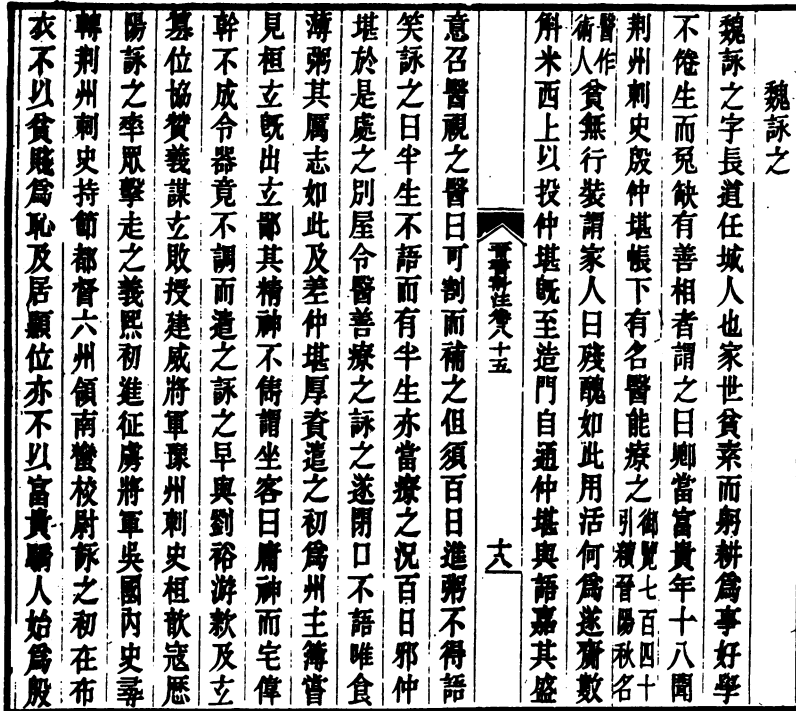 魏詠之
魏詠之字長道任城人也家世貧素而躬耕爲事好學
不倦生而兔缺有善相者謂之曰卿當富貴年十八聞
荆州刺史殷仲堪帳下有名醫能療之御覽七百四十引續晉陽秋名
醫作術人貧無行裝謂家人曰殘醜如此用活何爲遂齎數
斛米西上以投仲堪既至造門自通仲堪與語嘉其盛
晉書斠注卷八十五
十八
意召醫視之醫曰可割而補之但須百日進粥不得語
笑詠之曰半生不語而有半生亦當療之況百日邪仲
堪於是處之別屋令醫善療之詠之遂閉口不語唯食
薄粥其厲志如此及差仲堪厚資遣之初爲州主簿嘗
見桓玄既出玄鄙其精神不雋謂坐客曰庸神而宅偉
幹不成令器竟不調而遣之詠之早與劉裕游款及玄
篡位協贊義謀玄敗授建威將軍豫州刺史桓歆寇歷
陽詠之率眾擊走之義熙初進征虜將軍吳國內史尋
轉荆州刺史持節都督六州領南蠻校尉詠之初在布
衣不以貧賤爲恥及居顯位亦不以富貴驕人始爲殷